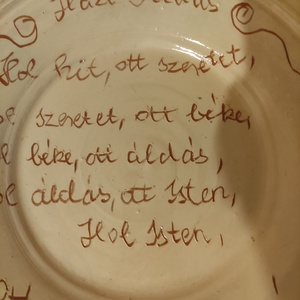 Házi Áldás
Hol hit, ott szeretet,
ol szeretet, ott béke,
ol béke, ott áldás,
ol áldás, ott Isten,
Hol Isten,